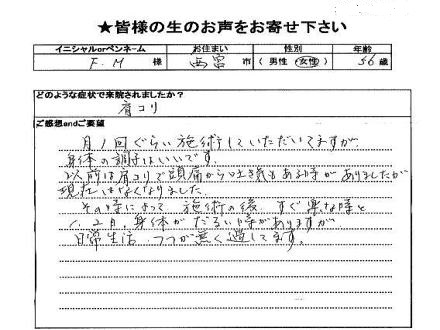 ★皆様の生のお声をお寄せ下さい
イニシャルorペンネーム お住まい 性別 年齢
F.M 様 西宮 市 (男性 女性) 56歳
どのような症状で来院されましたか?
肩コリ
ご感想andご要望
月1回ぐらい施術していただいてますが、
身体の調子はいいです。
以前は肩コリで頭痛から吐き気もある時がありましたが
現在はなくなりました。
その時によって、施術の後、すぐ楽な時と
1、2日、身体がだるい時がありますが
日常生活、つつが無く過してます。